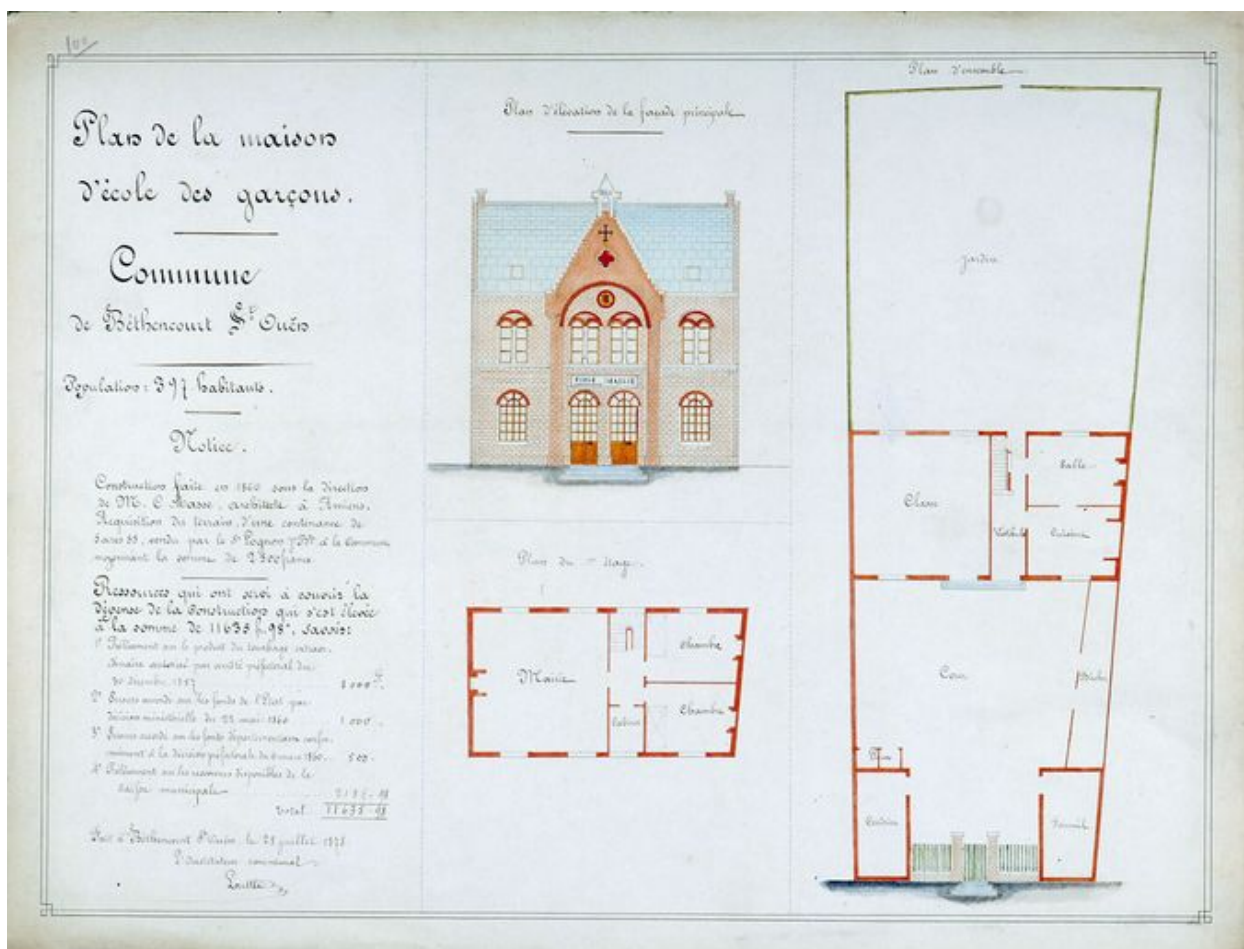 100
Plan de la maison
d'école des garçons.
Commune
de Béthencourt St Ouën
Population : 397 habitants.
Notice.
Construction faite en 1860 sous la direction
de M. C. Masse, architecte à Amiens.
Acquisition du terrain, d'une contenance de
5 ares 85, vendu par le Sr Pognon à la Commune
moyennant la somme de 2300 francs.
Ressources qui ont servi à couvrir la
dépense de la Construction qui s'est élevée
à la somme de 11635 f. 98c, savoir:
1° Prélèvement sur le produit du tourbage extraor-
dinaire autorisé par arrêté préfectoral du
30 décembre 1857
8000 f.
2° Secours accordé sur les fonds de l'État par
décision ministérielle du 22 mai 1860
1000
3° Secours accordé sur les fonds départementaux confor-
mément à la décision préfectorale du 6 mars 1860.
500
4° Prélèvement sur les ressources disponibles de la
caisse municipale
2135-98
Total
11635-98
Fait à Béthencourt St Ouën, le 28 juillet 1878
L'Instituteur communal
Plan d'élévation de la façade principale
ECOLE MAIRIE
Plan du 1er étage.
Mairie
Chambre
Cabinet
Chambre
Plan d'ensemble
Jardin
Classe
Vestibule
Salle
Cuisine
Cour
Bûcher
Fournil